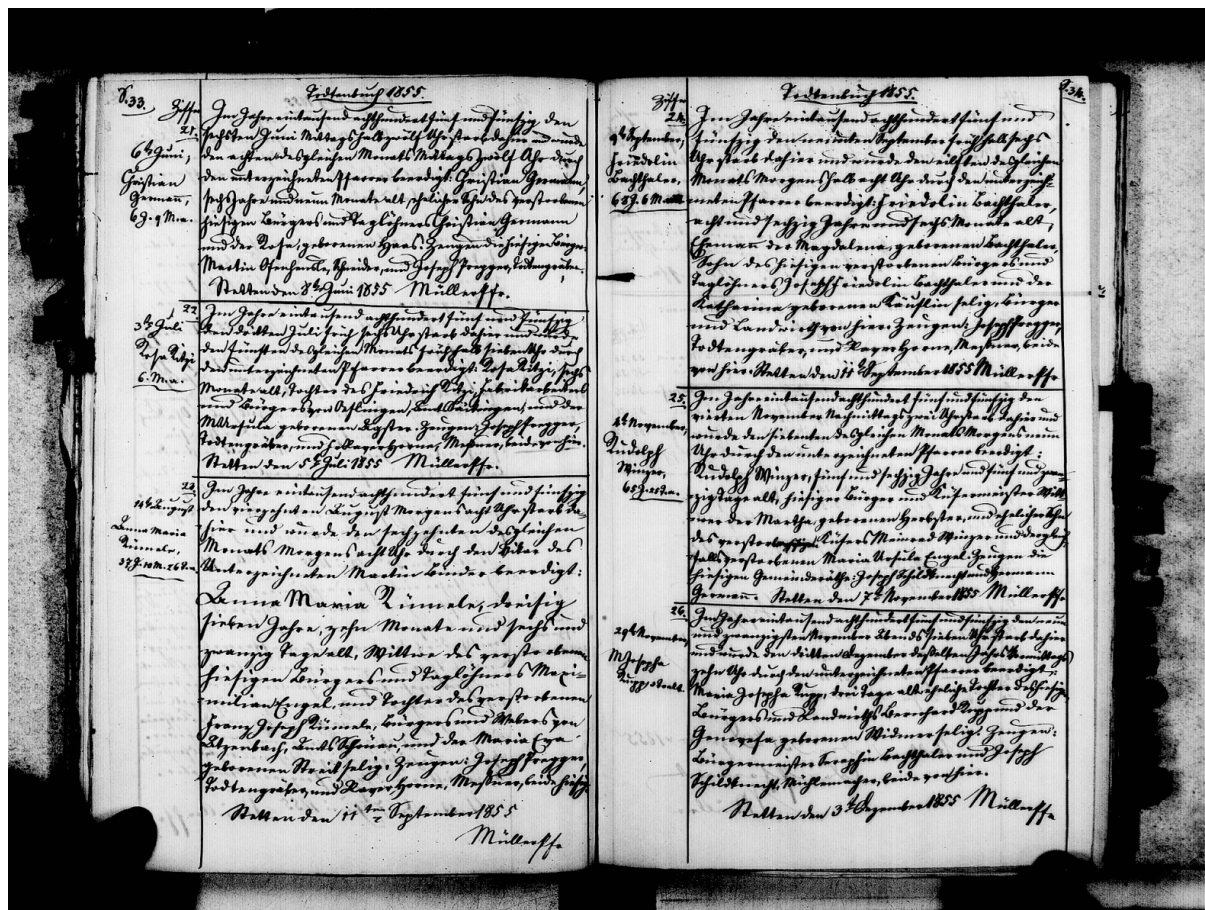 S. 33.
Todtenbuch 1855.
Ziffer
21.
6te Juni,
Christian
Germann,
6 J. 9 M. a.
Im Jahre eintausend achthundert fünf und fünfzig den
sechsten Juni Mittags halb zwölf Uhr starb dahier und wurde
den achten desgleichen Monats Mittags zwölf Uhr durch
den unterzeichneten Pfarrer beerdigt: Christian Germann,
sechs Jahre und neun Monate alt, ehelicher Sohn des verstorbenen
hiesigen Bürgers und Taglöhners Christian Germann
und der Rosa, geborenen Haas. Zeugen die hiesigen Bürger
Martin Schneider, und Joseph Pregger, Todtengräber,
Stetten den 8te Juni 1855 Müller Pfr.
22.
3te Juli
Rosa Ritzi
6. M. a.
Im Jahre eintausend achthundert fünf und fünfzig
den dritten Juli früh sechs Uhr starb dahier und wurde
den fünften desgleichen Monats früh halb sieben Uhr durch
den unterzeichneten Pfarrer beerdigt: Rosa Ritzi, sechs
Monate alt, Tochter des Friedrich Ritzi, Fabrikarbeiters
und Bürgers von Oeflingen, Amts Säckingen, und der
M. Ursula geborenen Zeugen: Joseph Pregger,
Todtengräber, und Xaver Horne, Meßner, beide von hier.
Stetten den 5te Juli 1855 Müller Pfr.
23.
14te August
Anna Maria
Rünnele,
37 J. 10 M. 26 T. a.
Im Jahre eintausend achthundert fünf und fünfzig
den vierzehnten August Morgens acht Uhr starb da-
hier und wurde den sechzehnten desgleichen
Monats Morgens acht Uhr durch den Vikar des
Unterzeichneten Martin Binder beerdigt:
Anna Maria Rünnele, dreisig
sieben Jahre, zehn Monate und sechs und
zwanzig Tage alt, Wittwe des verstorbenen
hiesigen Bürgers und Taglöhners Maxi-
milian Engel, und Tochter des verstorbenen
Franz Joseph Rünnele, Bürgers und Webers von
Atzenbach, Amts Schönau, und der Maria Eva
geborenen Streich selig. Zeugen: Joseph Pregger,
Todtengräber, und Xaver Horne, Meßner, beide hiesig.
Stetten den 11ten September 1855
Müller Pfr.
S. 34.
Todtenbuch 1855.
Ziffer
24.
9te September,
Friedolin
Bachthaler,
68 J. 6 M. alt.
Im Jahre eintausend achthundert fünf und
fünfzig den neunten September früh halb sechs
Uhr starb dahier und wurde den eilften desgleichen
Monats Morgens halb acht Uhr durch den unterzeich-
neten Pfarrer beerdigt: Friedolin Bachthaler,
acht und sechzig Jahre und sechs Monate alt,
Ehemann der Magdalena, geborenen Bachthaler,
Sohn des hiesigen verstorbenen Bürgers und
Taglöhners Joseph Friedolin Bachthaler und der
Katharina geborenen selig, Bürger
und Landwirth von hier. Zeugen: Joseph Pregger,
Todtengräber, und Xaver Horne, Meßner, beide
von hier. Stetten den 11te September 1855 Müller Pfr
25.
4te November,
Rudolph
Winzer,
65 J. 25 T. a.
Im Jahre eintausend achthundert fünf und fünfzig den
vierten November Nachmittags zwei Uhr starb dahier und
wurde den siebenten desgleichen Monats Morgens neun
Uhr durch den unterzeichneten Pfarrer beerdigt:
Rudolph Winzer, fünf und sechzig Jahre und fünf und zwan-
zig Tage alt, hiesiger Bürger und Küfermeister Witt-
wer der Martha, geborenen Herbster, und ehelicher Sohn
des verstorbenen Küfers Meinrad Winzer und der gleich-
falls verstorbenen Maria Ursula Engel. Zeugen die
hiesigen Gemeinderäthe: Joseph Schildknecht und Hermann
Germann. Stetten den 7te November 1855 Müller Pfr.
26.
29te November,
M. Josepha
Rupp, 3 T. alt.
Im Jahre eintausend achthundert fünf und fünfzig den neun
und zwanzigsten November Abends sieben Uhr starb dahier
und wurde den dritten Dezember desselben Jahrs Vormittags
zehn Uhr durch den unterzeichneten Pfarrer beerdigt:
Maria Josepha Rupp, drei Tage alt, eheliche Tochter des hiesigen
Bürgers und Landwirths Bernhard Rupp und der
Genovefa geborenen Widmer selig. Zeugen:
Bürgermeister Seraphin Bachthaler und Joseph
Schildknecht, Stuhlmacher, beide von hier.
Stetten den 3te Dezember 1855 Müller Pfr.